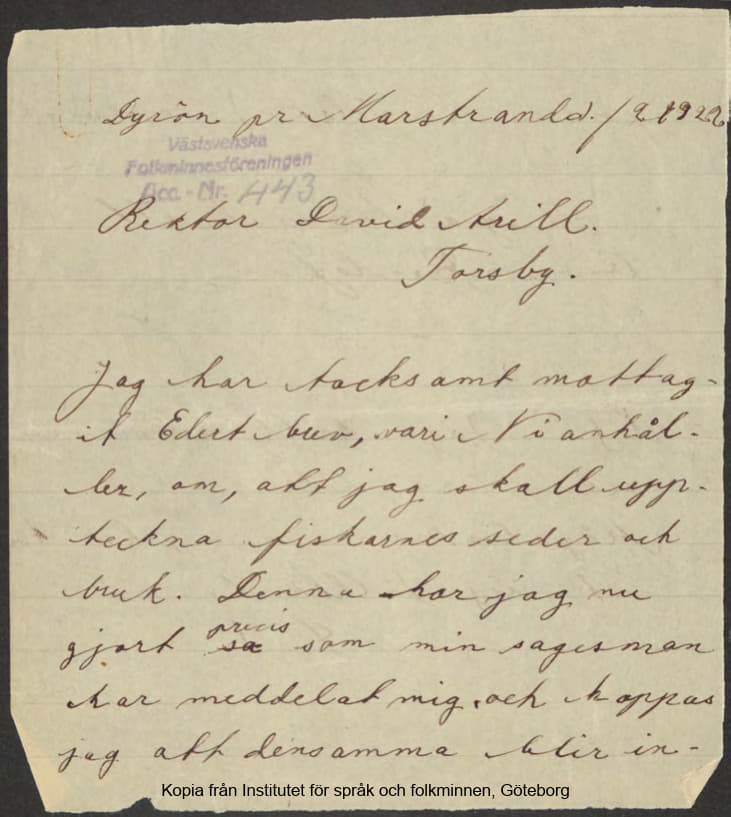 Dyrön pr Marstrand d. /2 1922
Västsvenska
Folkminnesföreningen
Acc.-Nr. 443
Rektor David Arill.
Torsby.
Jag har tacksamt mottag-
it Edert brev, vari Ni anhål-
ler, om, att jag skall upp-
teckna fiskarnes seder och
bruk. Denna har jag nu
gjort precis som min sagesman
har meddelat mig, och hoppas
jag att densamma blir in-
Kopia från Institutet för språk och folkminnen, Göteborg